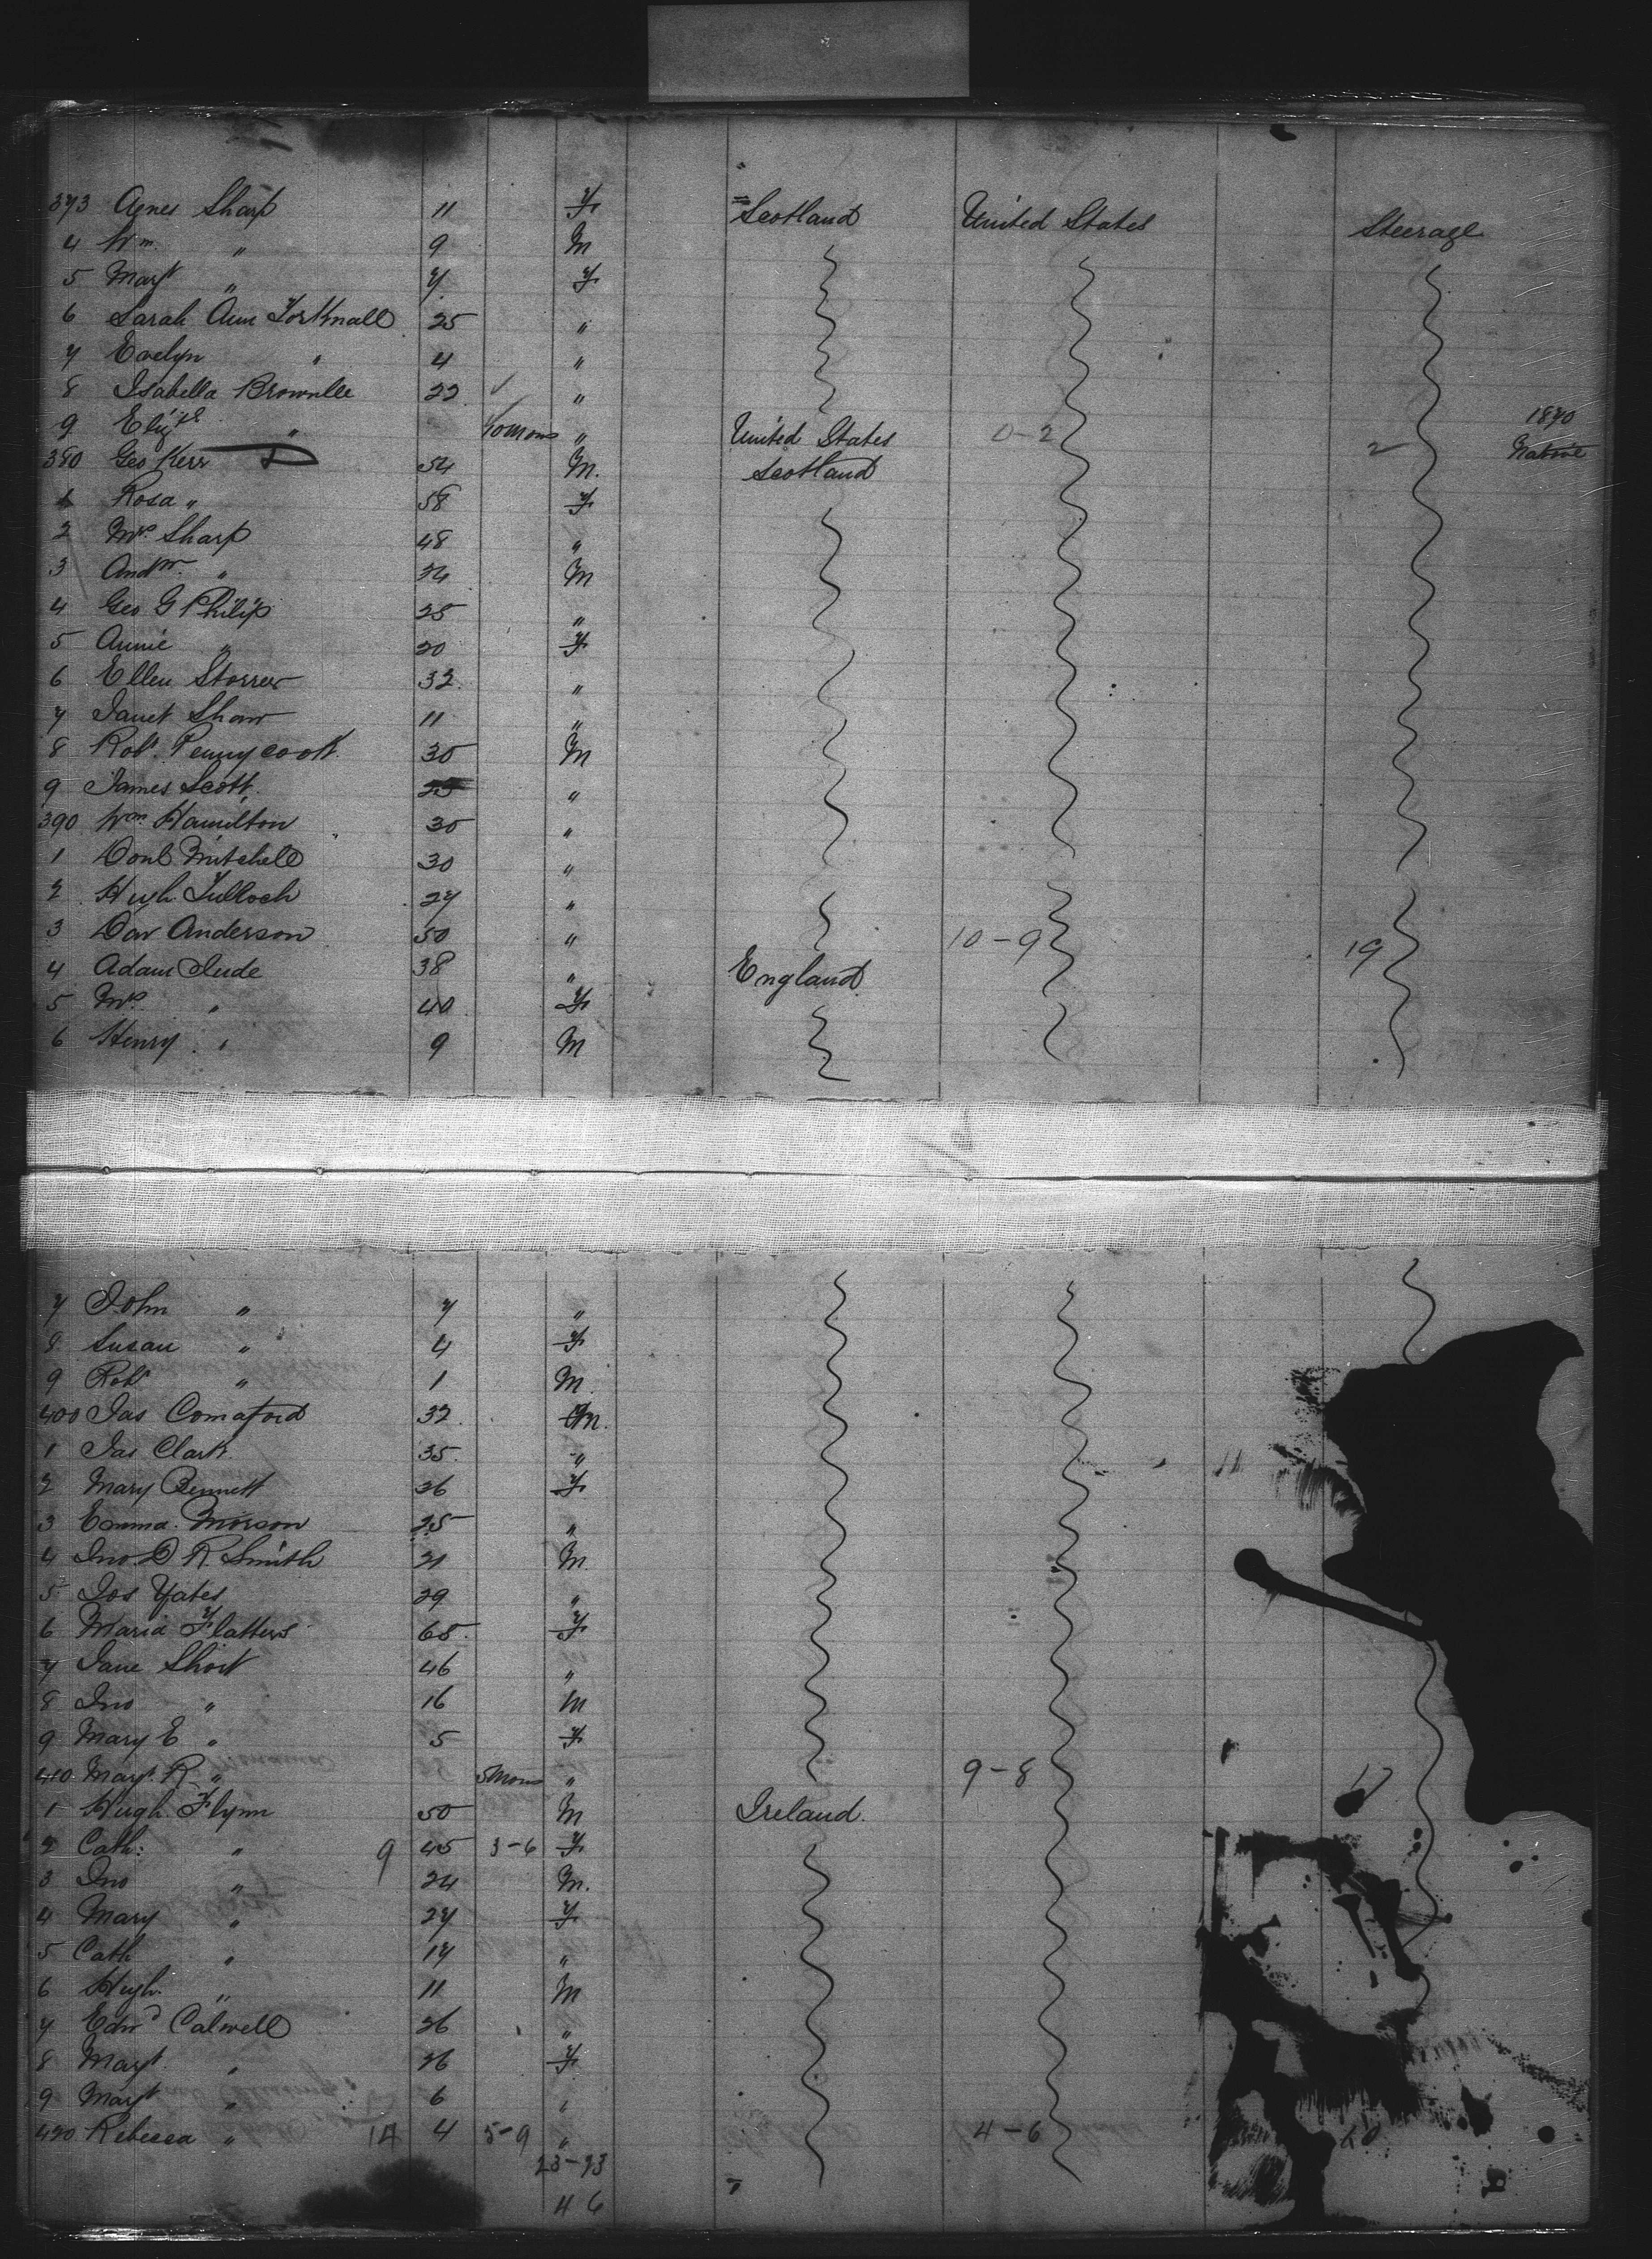 373 Agnes Sharp 11 F Scotland United States Steerage
4 Wm " 9 M
5 Margt " 7 F
6 Sarah Ann 25 "
7 Evelyn " 4 "
8 Isabella Brownlee 22 "
9 Elizth " 10 mons " United States 0-2 2 1870 Native
380 Geo Kerr 54 M. Scotland
1 Rosa " 58 F
2 Mrs Sharp 48 "
3 Andw " 24 M
4 Geo G Philip 25 "
5 Annie " 20 F
6 Ellen Storrer 32 "
7 Janet Shaw 11 "
8 Robt Pennycook 30 M
9 James Scott "
390 Wm Hamilton 30 "
1 Donl Mitchell 30 "
2 Hugh Tulloch 27 "
3 Dav Anderson 50 " 10-9 19
4 Adam 38 " England
5 Mrs " 40 F
6 Henry " 9 M
7 John " 7 "
8 Susan " 4 F
9 Robt " 1 M
400 Jas Comaford 32 M.
1 Jas Clark 35 "
2 Mary Bennett 26 F
3 Emma Morson 25 "
4 Jno D R Smith 21 M
5 Jos Yates 29 "
6 Maria Flatters 65 F
7 Jane Short 46 "
8 Jno " 16 M
9 Mary E " 5 F
410 Margt R " 5 mons " 9-8 17
1 Hugh Flynn 50 M Ireland
2 Cath: " 9 45 3-6 F
3 Jno " 24 M.
4 Mary " 27 F
5 Cath " 17 "
6 Hugh " 11 M
7 Edwd Calwell 26 "
8 Margt " 26 F
9 Margt " 6 "
420 Rebecca " 14 4 5-9 " 4-6
23-23
46